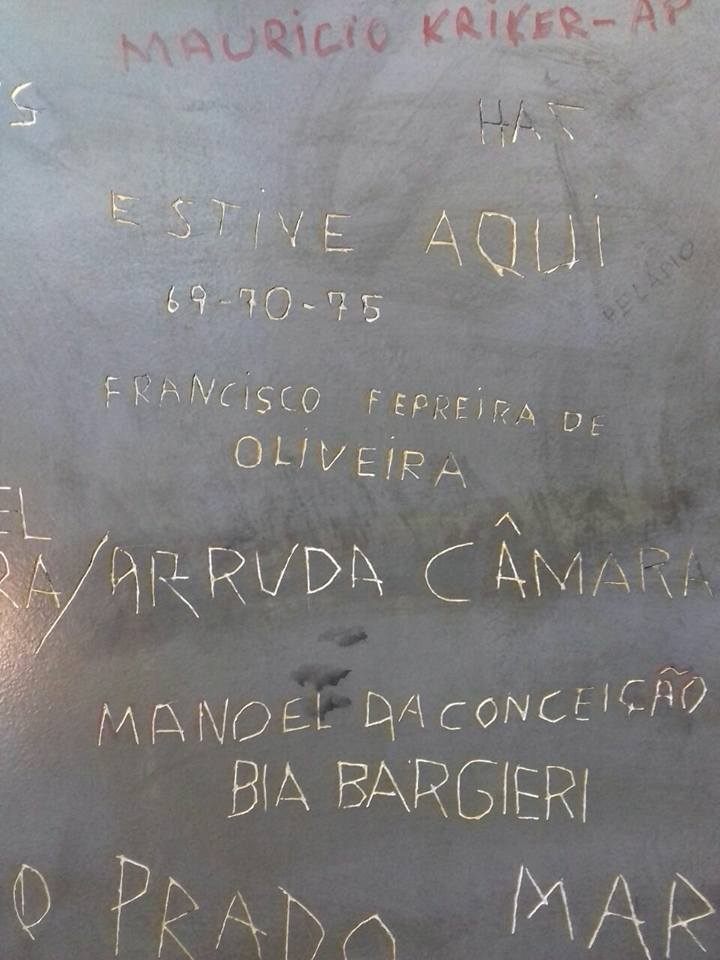 MAURICIO KRIKER-AP
S
HAS
ESTIVE AQUI
69-70-75
PELADIO
FRANCISCO FERREIRA DE
OLIVEIRA
EL
RA/ARRUDA CÂMARA
MANOEL DA CONCEIÇÃO
BIA BARGIERI
O PRADO MAR